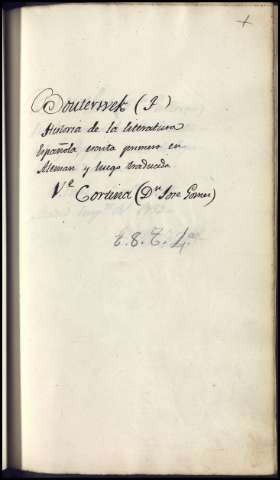 +
Bouterwek (F)
Historia de la literatura
Española escrita primero en
Aleman y luego traducida
Vᵉ Cortina (Dⁿ Jose Gomez)